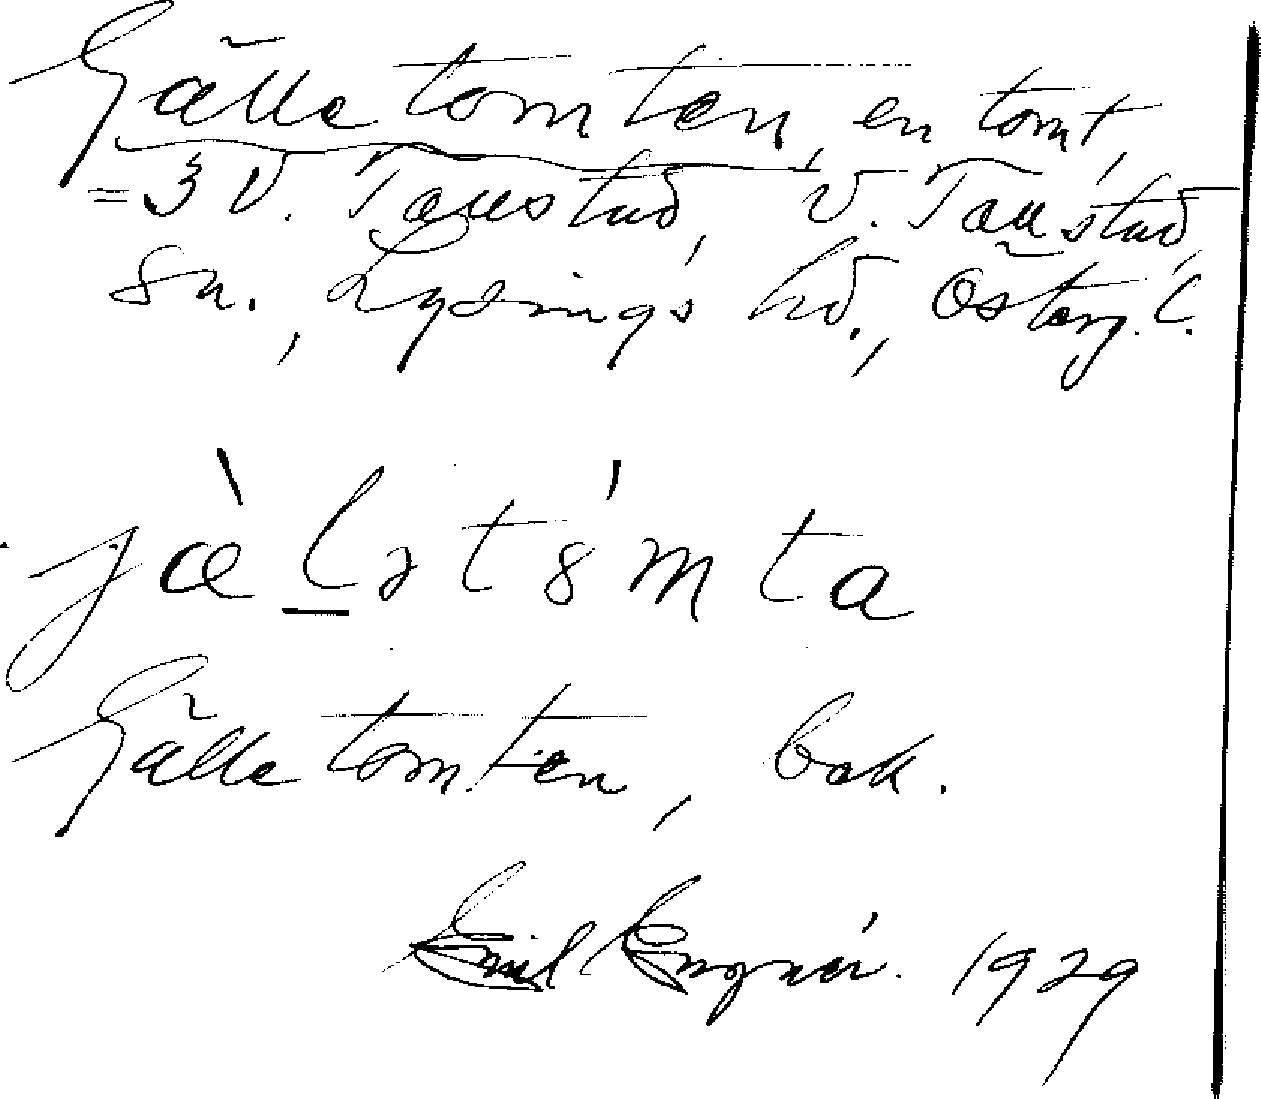 Gälletomten, en tomt,
= 3 V. Tollstad, V. Tollstad
sn., Lysings hd., Österg. l.
jæ̀lətómta
Gälletomten, bok.
Emil Engnér. 1929